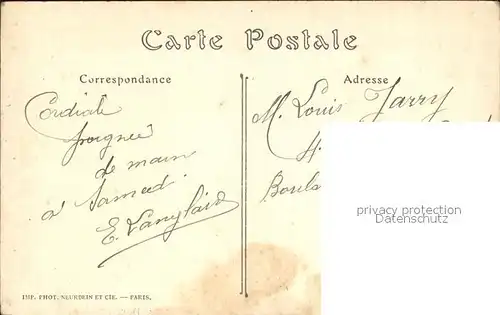 Carte Postale
Correspondance
Adresse
Cordiale
poignée
de main
à Samedi.
E. Langlais
M. Louis Jarry
4
privacy protection
Datenschutz
IMP. PHOT. NEURDEIN ET CIE. — PARIS.